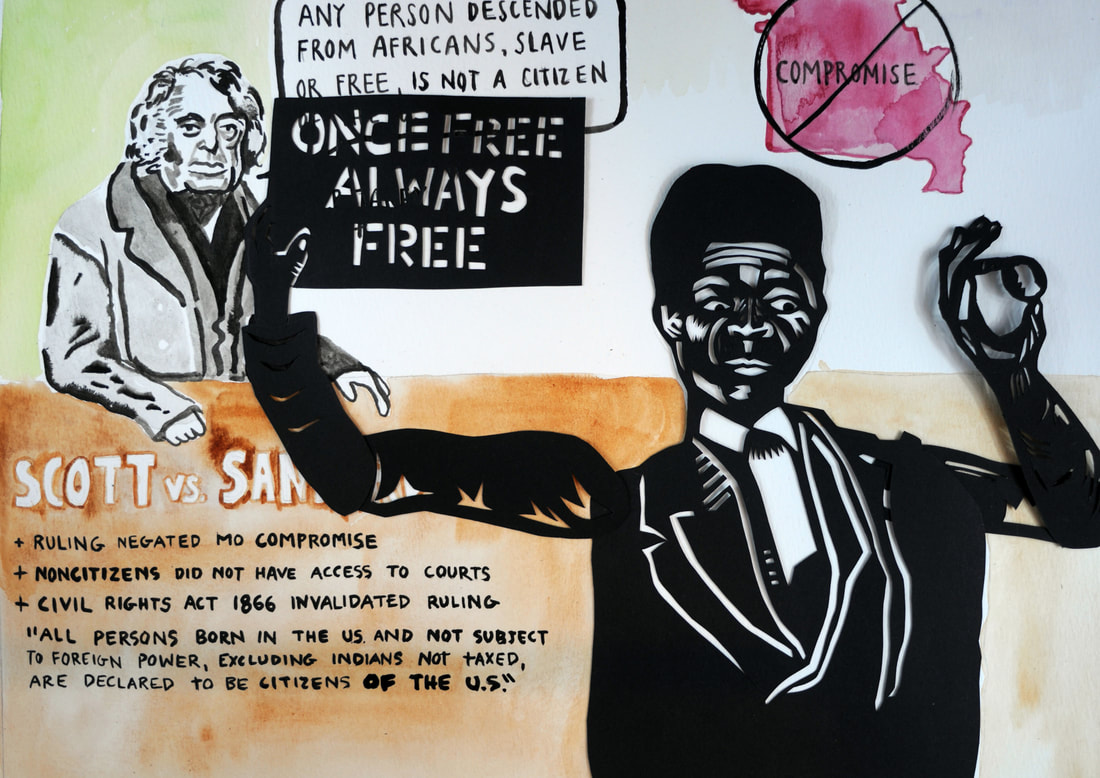 ANY PERSON DESCENDED
FROM AFRICANS, SLAVE
OR FREE, IS NOT A CITIZEN
ONCE FREE
ALWAYS
FREE
COMPROMISE
SCOTT VS.
+ RULING NEGATED MO COMPROMISE
+ NONCITIZENS DID NOT HAVE ACCESS TO COURTS
+ CIVIL RIGHTS ACT 1866 INVALIDATED RULING
"ALL PERSONS BORN IN THE US. AND NOT SUBJECT
TO FOREIGN POWER, EXCLUDING INDIANS NOT TAXED,
ARE DECLARED TO BE CITIZENS OF THE U.S."